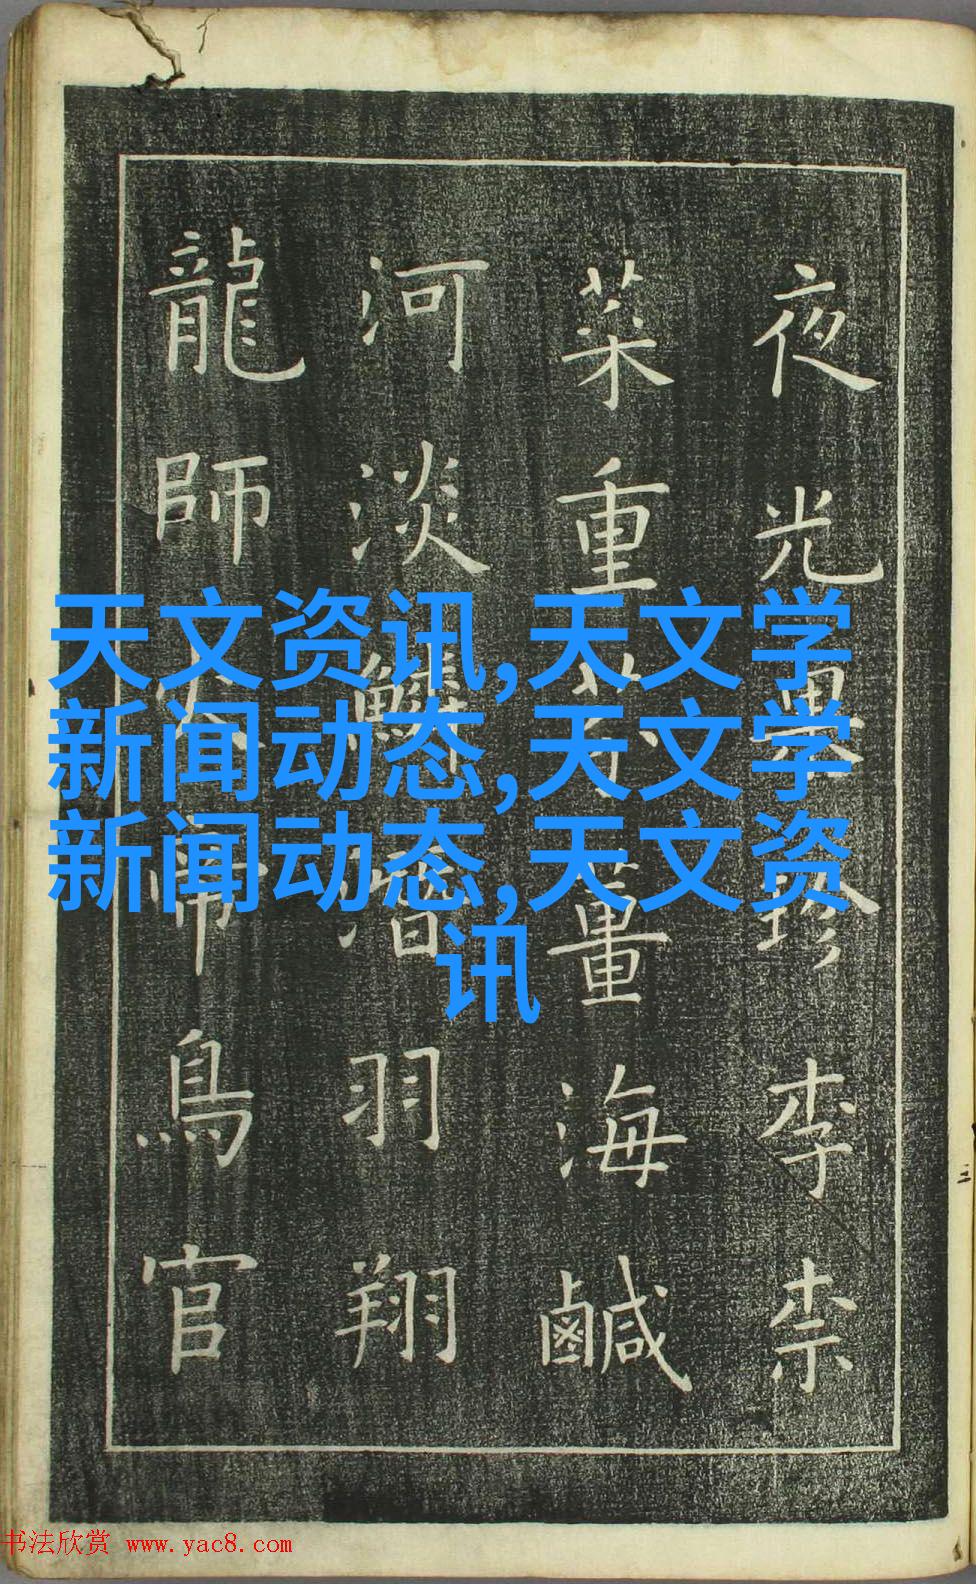 夜光果珍李柰
菜重芥薑海鹹
河淡鱗潛羽翔
龍師火帝鳥官
天文资讯,天文学
新闻动态,天文学
新闻动态,天文资
讯
书法欣赏 www.yac8.com